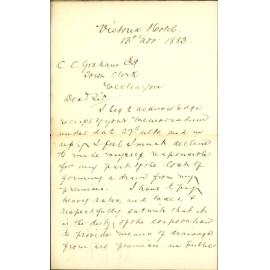 Victoria Hotel.
13th Nov. 1883
C. C. Graham Esq
Town Clerk
Dear Sir
I beg to acknowledge
receipt of your memorandum
under date 29th ulto, and in
reply I feel I must decline
to make myself responsible
for any part of the cost of
forming a drain from my
premises. I have to pay
heavy rates, and taxes, &
respectfully submit that it
is the duty of the corporation
to provide means of drainage
from all premises in public